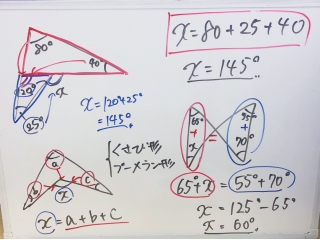 x=80+25+40
x=145°
80°
40°
120°
x
25°
x=120°+25°
=145°
a
b
c
x
くさび形
ブーメラン形
x=a+b+c
65°
+
x
=
55°
+
70°
65°+x=55°+70°
x=125°-65°
x=60°